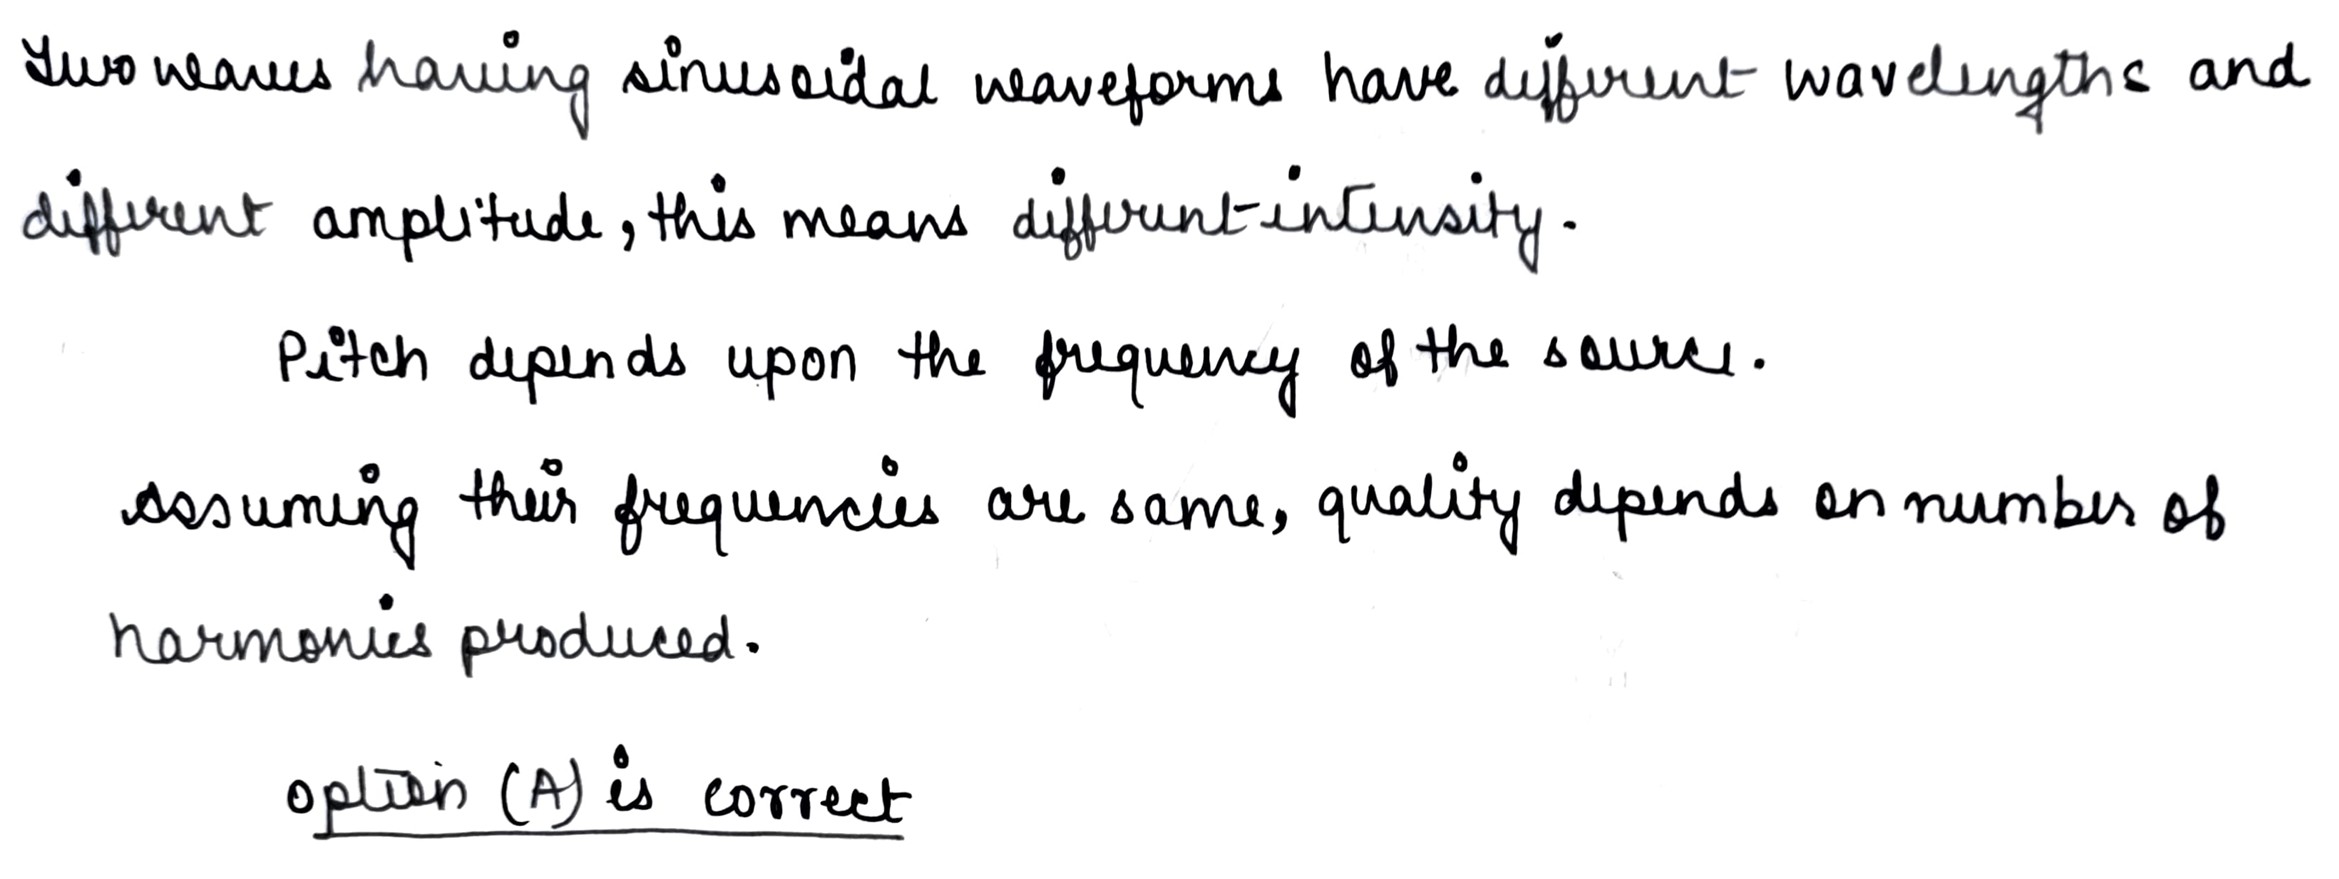 Two waves having sinusoidal waveforms have different wavelengths and
different amplitude, this means different intensity.
Pitch depends upon the frequency of the source.
Assuming their frequencies are same, quality depends on number of
harmonics produced.
option (A) is correct